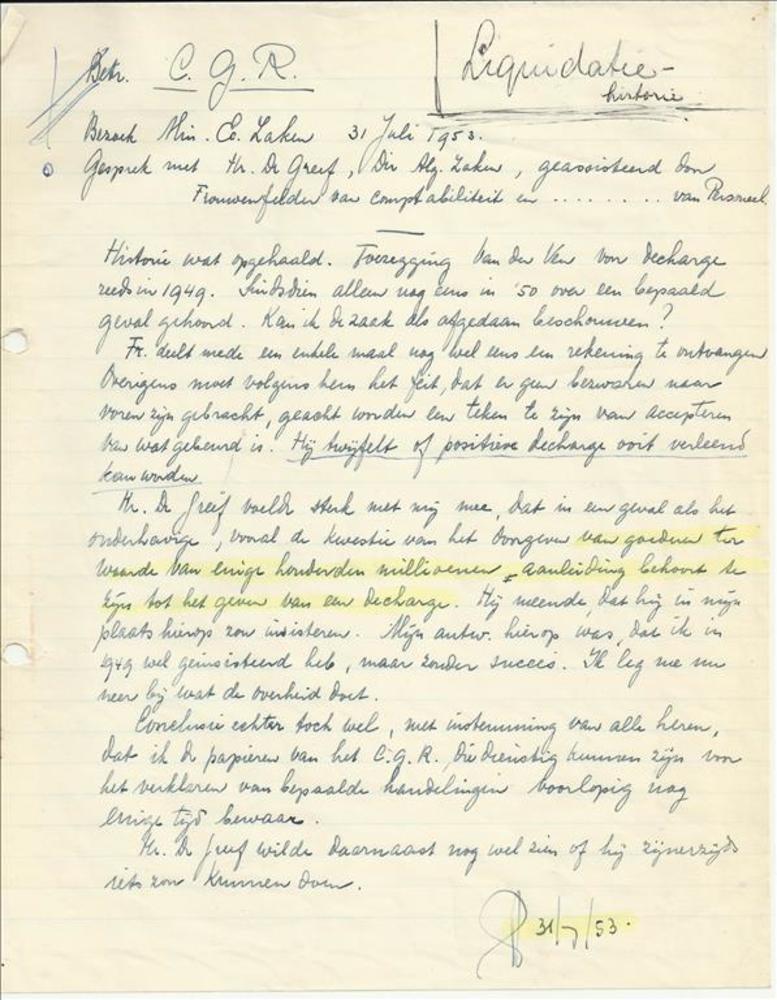 Betr. C. G. R.
Liquidatie-
historie
Bezoek Min. Ec. Zaken 31 Juli 1953.
Gesprek met Hr. De Greif, Dir Alg. Zaken, geassisteerd door
Frouwenfelder van comptabiliteit en ........ van Personeel.
Historie wat opgehaald. Toezegging Van der Ven voor decharge
reeds in 1949. Sindsdien alleen nog eens in '50 over een bepaald
geval gehoord. Kan ik de zaak als afgedaan beschouwen?
Fr. deelt mede een enkele maal nog wel eens een rekening te ontvangen
Overigens moet volgens hem het feit, dat er geen bezwaren naar
voren zijn gebracht, geacht worden een teken te zijn van accepteren
van wat gebeurd is. Hij twijfelt of positieve decharge ooit verleend
kan worden
Hr. De Greif voelde sterk met mij mee, dat in een geval als het
onderhavige, vooral de kwestie van het doorgeven van goederen ter
waarde van enige honderden millioenen, aanleiding behoort te
zijn tot het geven van een decharge. Hij meende, dat hij in mijn
plaats hierop zou insisteren. Mijn antw. hierop was, dat ik in
1949 wel geinsisteerd heb, maar zonder succes. Ik leg me nu
neer bij wat de overheid doet.
Conclusie echter toch wel, met instemming van alle heren,
dat ik de papieren van het C.G.R. die dienstig kunnen zijn voor
het verklaren van bepaalde handelingen voorlopig nog
enige tijd bewaar.
Hr. De Greif wilde daarnaast nog wel zien of hij zijnerzijds
iets zou kunnen doen.
31/7/53.